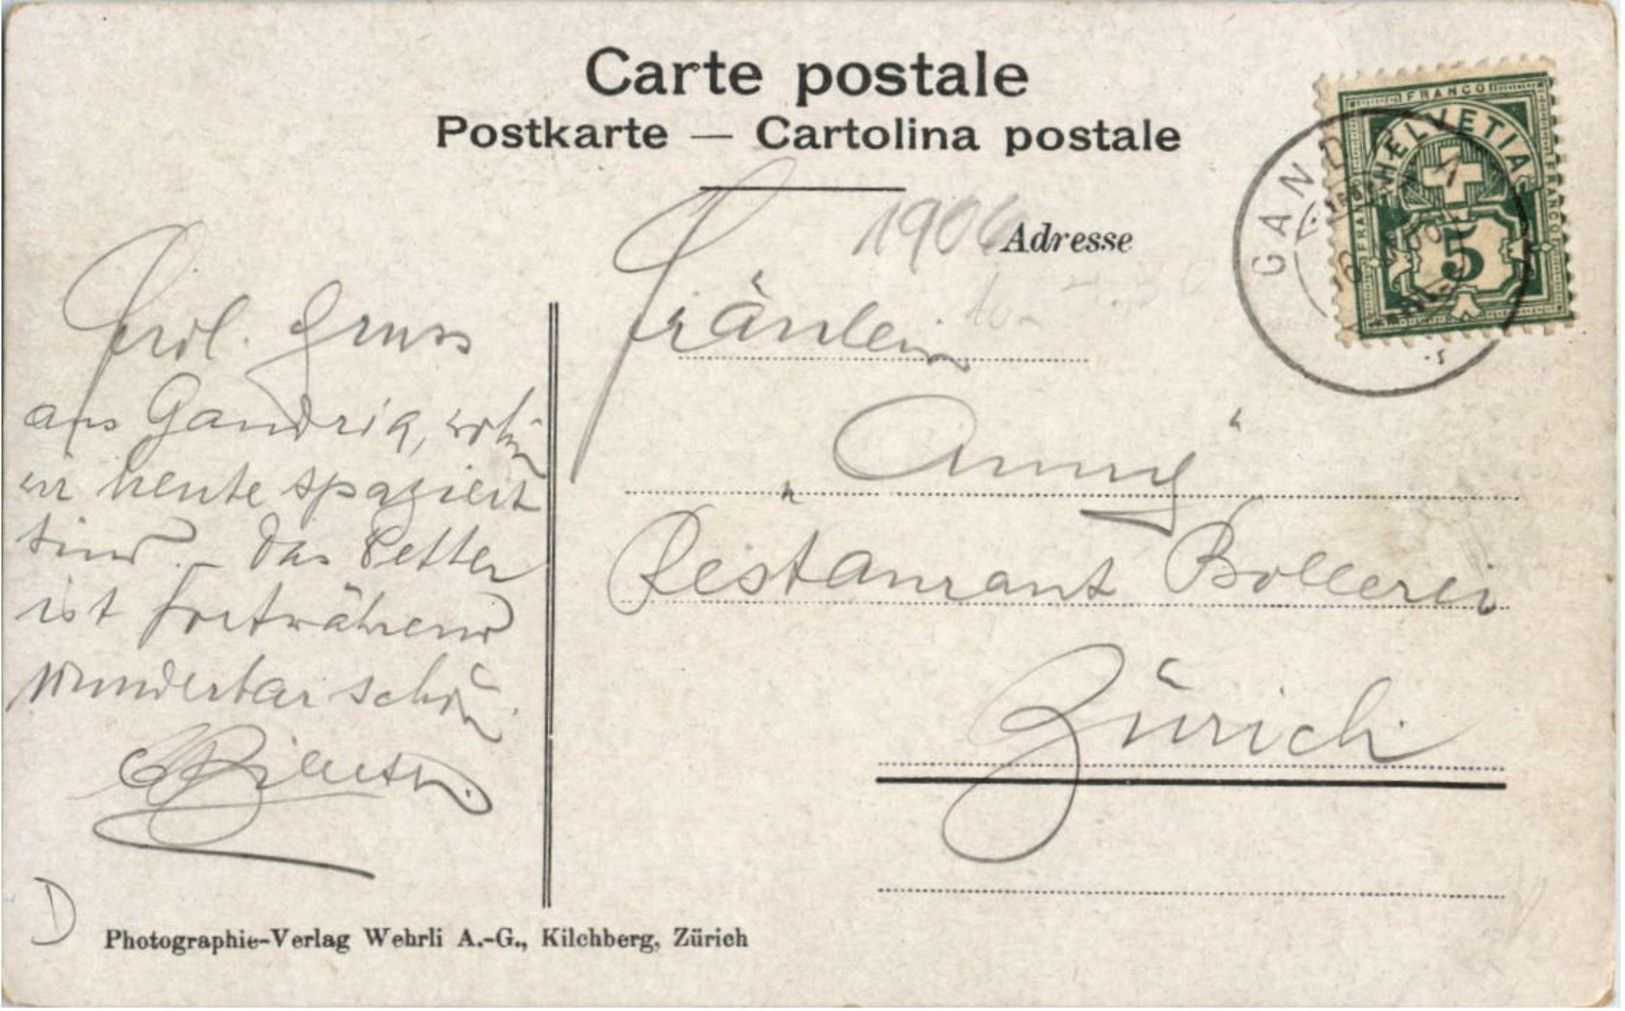 Carte postale
Postkarte — Cartolina postale
1906
Adresse
FRANCO
HELVETIA
FRANCO
FRANCO
5
GANDRIA
Frdl. Gruss
aus Gandria, wohin
wir heute spaziert
sind. – Das Wetter
ist fortwährend
wunderbar schön.
Fräulein
"Anny"
Restaurant Bollerei
Zürich
D
Photographie-Verlag Wehrli A.-G., Kilchberg, Zürich